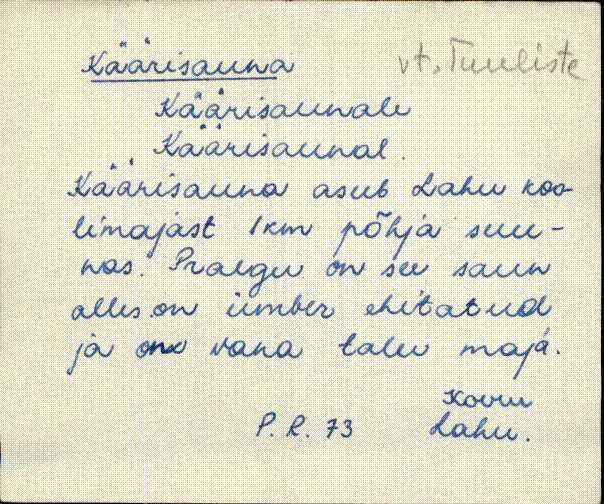 Käärisauna vt. Tuuliste
Käärisaunale
Käärisaunal.
Käärisauna asub Lahu koo-
limajast 1km põhja suu-
nas. Praegu on see saun
alles on ümber ehitatud
ja on vana talu maja.
Kovu
P. R. 73 Lahu.